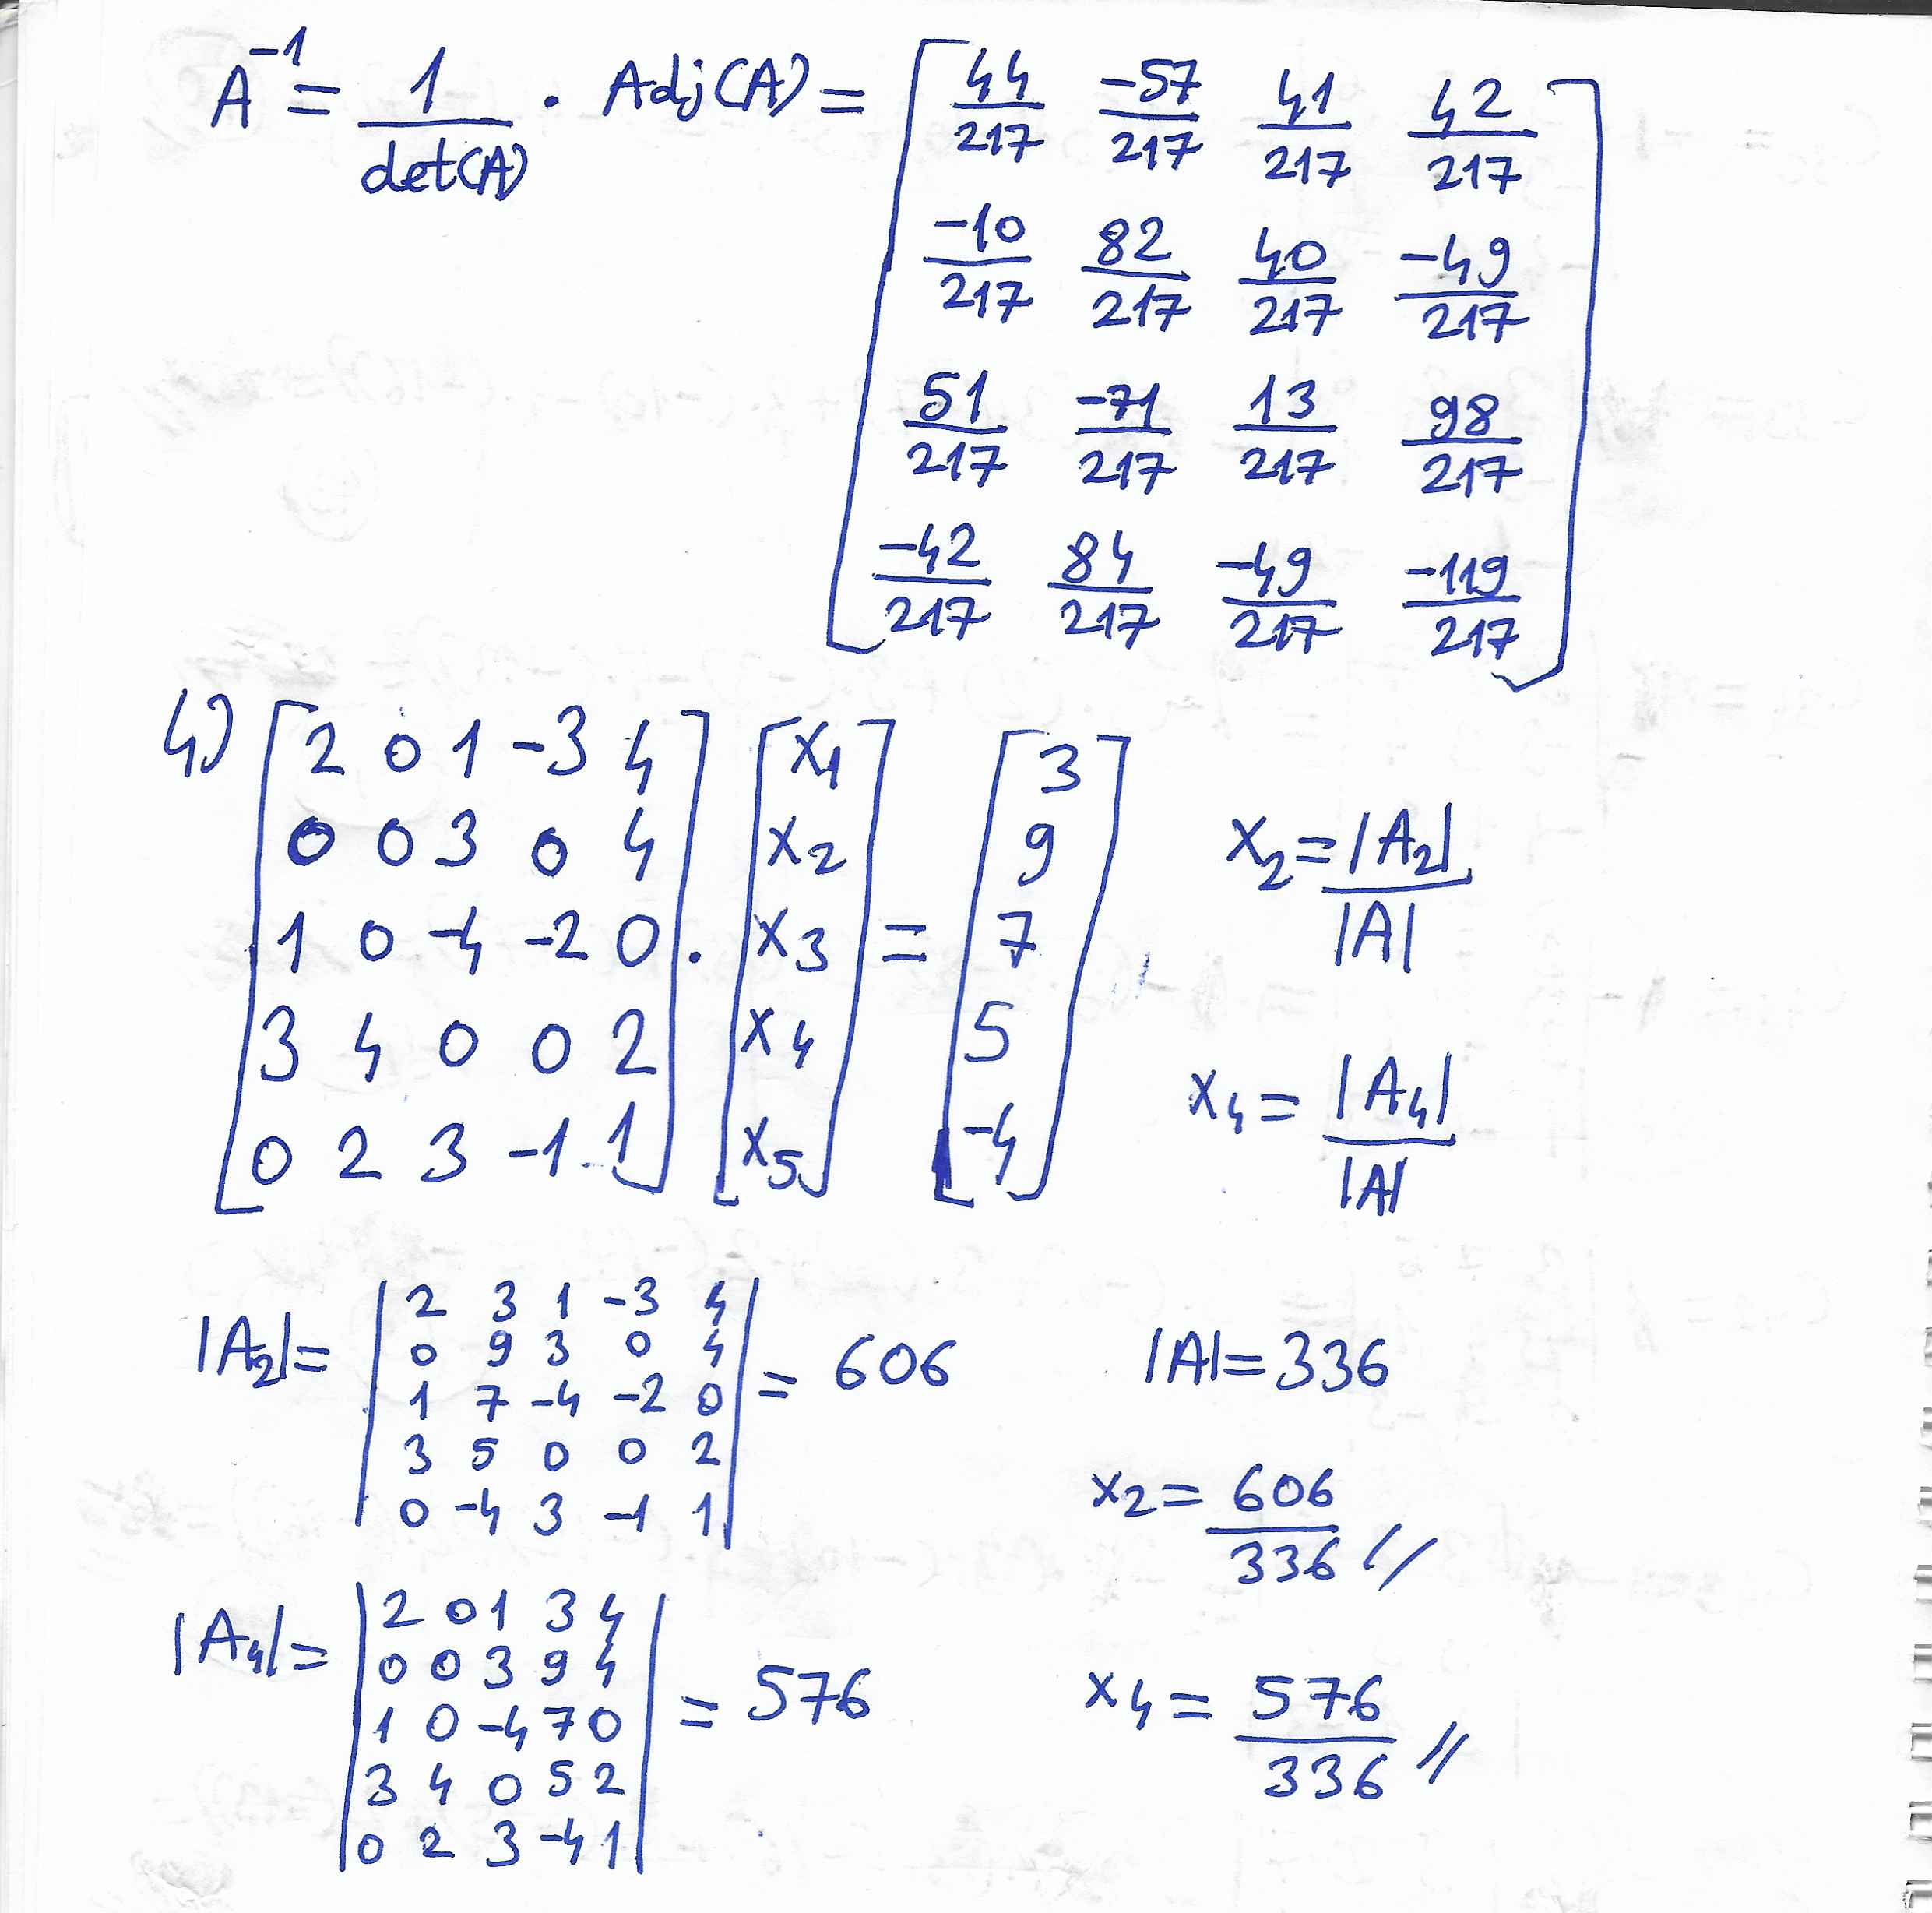 A⁻¹ = 1/det(A) · Adj(A) = [44/217 -57/217 41/217 42/217
-10/217 82/217 40/217 -49/217
51/217 -71/217 13/217 98/217
-42/217 84/217 -49/217 -119/217]
4) [2 0 1 -3 4
0 0 3 0 4
1 0 -4 -2 0
3 4 0 0 2
0 2 3 -1 1] · [x₁
x₂
x₃
x₄
x₅] = [3
9
7
5
-4]
x₂ = |A₂|/|A|
x₄ = |A₄|/|A|
|A₂| = |2 3 1 -3 4
0 9 3 0 4
1 7 -4 -2 0
3 5 0 0 2
0 -4 3 -1 1| = 606
|A| = 336
x₂ = 606/336 //
|A₄| = |2 0 1 3 4
0 0 3 9 4
1 0 -4 7 0
3 4 0 5 2
0 2 3 -4 1| = 576
x₄ = 576/336 //